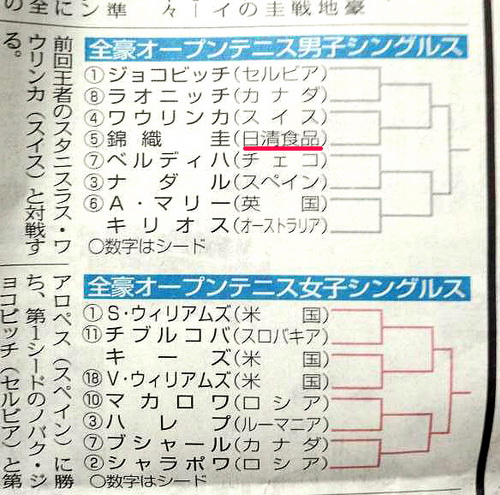 豪地戦圭のイー々準に
の全
全豪オープンテニス男子シングルス
①ジョコビッチ(セルビア)
⑧ラオニッチ(カナダ)
④ワウリンカ(スイス)
⑤錦織圭(日清食品)
⑦ベルディハ(チェコ)
③ナダル(スペイン)
⑥A・マリー(英国)
キリオス(オーストラリア)
○数字はシード
前回王者のスタニスラス・ワ
ウリンカ(スイス)と対戦す
る。
全豪オープンテニス女子シングルス
①S・ウィリアムズ(米国)
⑪チブルコバ(スロバキア)
キーズ(米国)
⑱V・ウィリアムズ(米国)
⑩マカロワ(ロシア)
③ハレプ(ルーマニア)
⑦ブシャール(カナダ)
②シャラポワ(ロシア)
○数字はシード
アロペス(スペイン)に勝
ち、第1シードのノバク・ジ
ョコビッチ(セルビア)と第